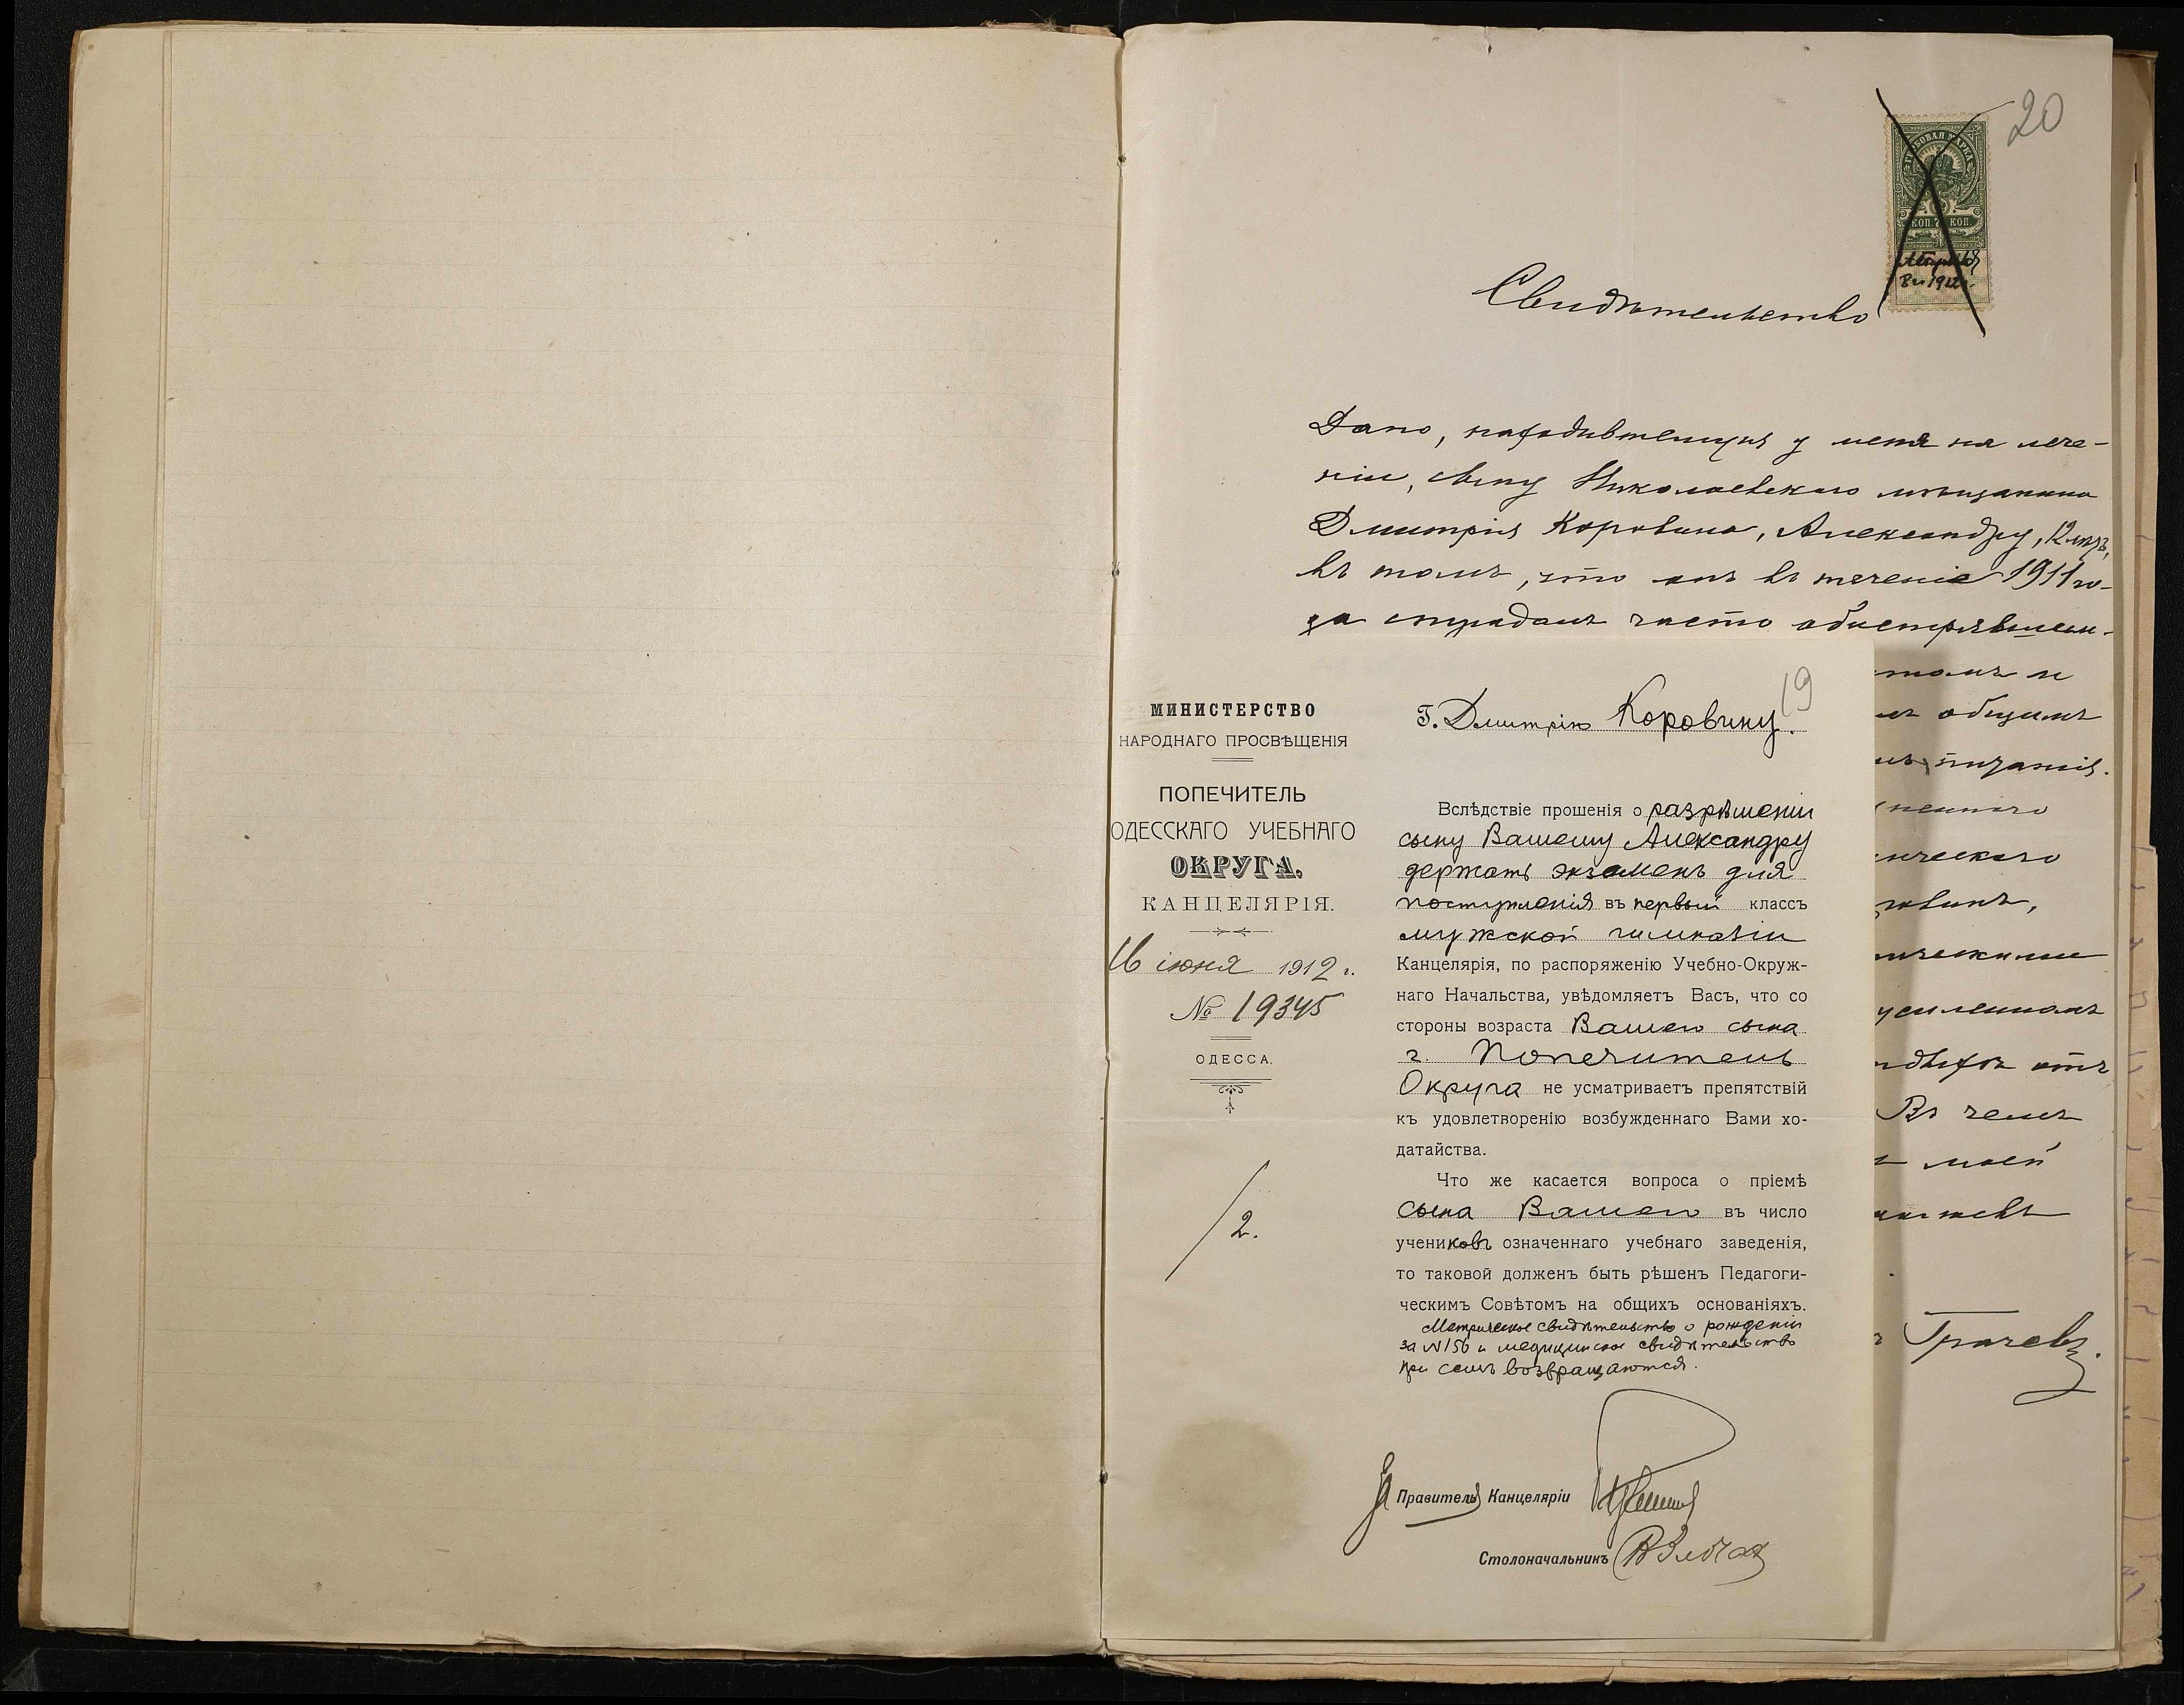 20
ГЕРБОВАЯ МАРКА
КОП. КОП.
1912
Свидѣтельство
Дано, находившемуся у меня на лече-
ніи, сыну Николаевскаго мѣщанина
Дмитрія Коровина, Александру, 12 лѣтъ,
въ томъ, что онъ въ теченіе 1911 го-
да страдалъ часто обострявшим-
и
общимъ
питанія.
ческаго
усиленномъ
отъ
Въ чемъ
моей
Грачевъ.
19
МИНИСТЕРСТВО
НАРОДНАГО ПРОСВѢЩЕНІЯ
ПОПЕЧИТЕЛЬ
ОДЕССКАГО УЧЕБНАГО
ОКРУГА.
КАНЦЕЛЯРІЯ.
16 іюня 1912 г.
№ 19345
ОДЕССА.
/2.
Г. Дмитрію Коровину.
Вслѣдствіе прошенія о разрѣшеніи
сыну Вашему Александру
держать экзаменъ для
поступленія въ первый классъ
мужской гимназіи
Канцелярія, по распоряженію Учебно-Окруж-
наго Начальства, увѣдомляетъ Васъ, что со
стороны возраста Вашего сына
г. Попечитель
Округа не усматриваетъ препятствій
къ удовлетворенію возбужденнаго Вами хо-
датайства.
Что же касается вопроса о пріемѣ
сына Вашего въ число
учениковъ означеннаго учебнаго заведенія,
то таковой долженъ быть рѣшенъ Педагоги-
ческимъ Совѣтомъ на общихъ основаніяхъ.
Метрическое свидѣтельство о рожденіи
за N 156 и медицинское свидѣтельство
при семъ возвращаются.
За Правителя Канцеляріи
Столоначальникъ